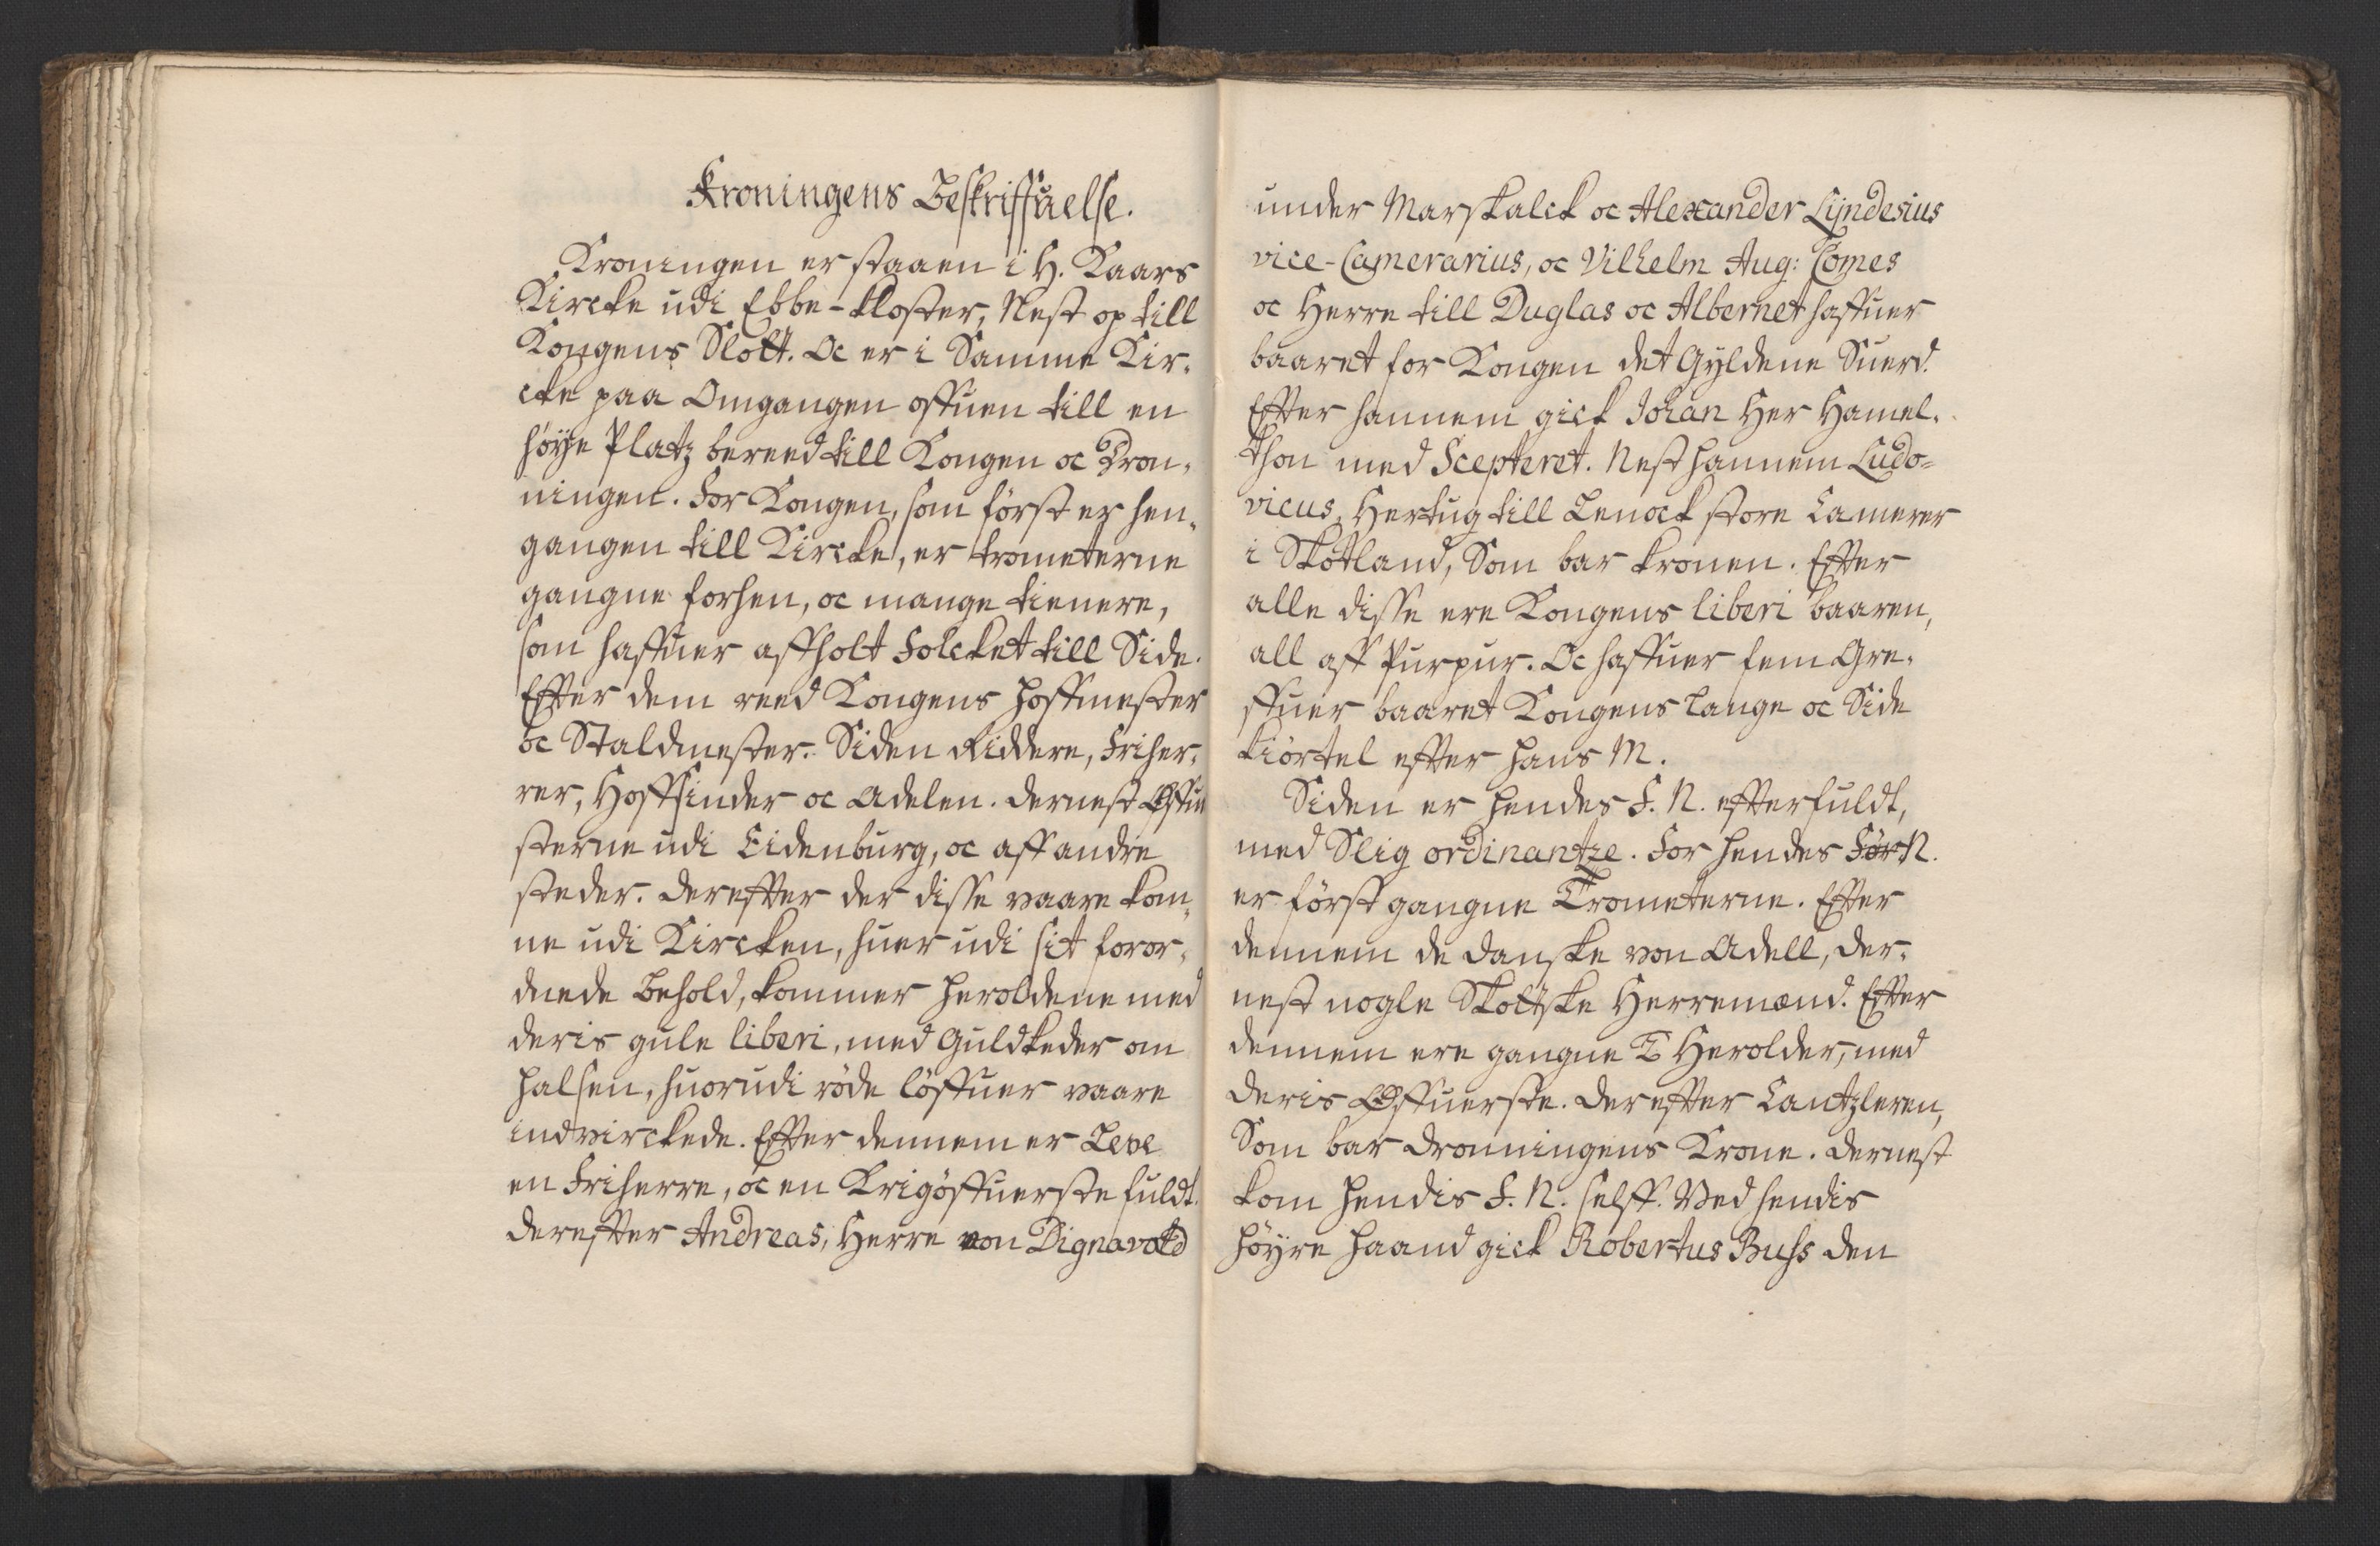 Kroningens Beskriffuelse.
Kroningen er staaen i H. Kaars
Kircke udi Ebbe-kloster, Nest op till
Kongens Slott. Oc er i Samme Kir,
cke paa Omgangen offuen till en
høye Platz bereed till Kongen oc Dron,
ningen. For Kongen, som först er hen,
gangen till Kircke, er trometerne
gangne forhen, oc mange tienere,
som haffuer affholt Folcket till Side.
Effter dem reed Kongens hoffmester
oc Staldmester. Siden Riddere, Friher,
rer, Hoffsinder oc Adelen. dernest Øffuer
sterne udi Eidenburg, oc aff andre
steder. dereffter der disse vaare kom,
ne udi Kircken, huer udi sit foror,
dnede Behold, kommer heroldene med
deris gule liberi, med Guldkeder om
halsen, huorudi röde löffuer vaare
indvirckede. Effter dennem er Leve
en Friherre, oc en Krigöffuerste fuldt.
dereffter Andreas, Herre von Dignavold
under Marskalck oc Alexander Lijndesius
vice-Camerarius, oc Vilhelm Aug: Comes
oc Herre till Duglas oc Albernet haffuer
baaret for Kongen det Gyldene Suerd.
Effter hannem gick Johan Her Hamel,
thon med Scepteret. Nest hannem Ludo=
vicus, Hertug till Lenock store Camerer
i Skotland, Som bar kronen. Effter
alle disse ere Kongens liberi baaren,
all aff Purpur. Oc haffuer fem Gre,
ffuer baaret Kongens lange oc Side
kiörtel effter hans M.
Siden er hendes F. N. effterfuldt,
med Slig ordinantze. For hendes För N.
er först gangne Trometerne. Effter
dennem de danske von Adell, der,
nest nogle Skottske Herremænd. Effter
dennem ere gangne Herolder, med
deris Øffuerste. dereffter Cantzleren,
Som bar dronningens Krone. dernest
kom hendis F. N. selff. Ved hendis
høyre haand gick Robertus Buhs den